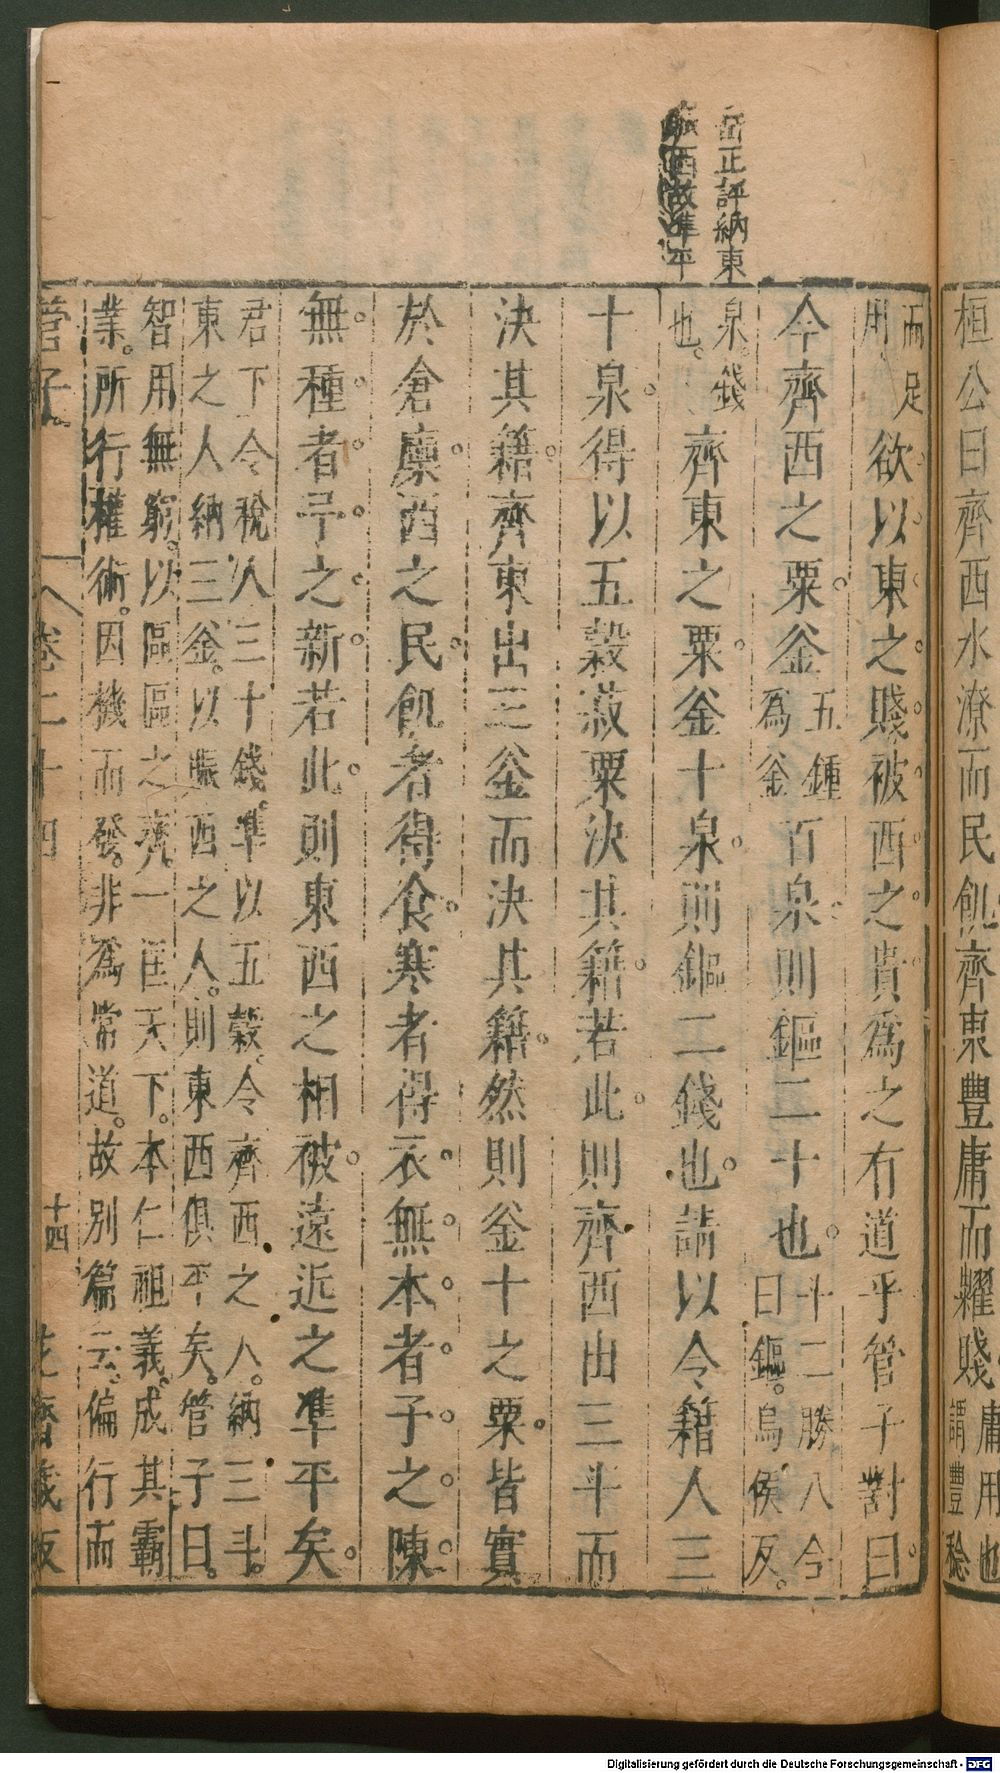 桓公曰齊西水潦而民飢齊東豐庸而糶賤庸用也謂豐稔
而足
用
欲以東之賤被西之貴爲之有道乎管子對曰
今齊西之粟釜五鍾爲釜百泉則鏂二十也斗二勝八合曰鏂烏侯反
泉錢也
齊東之粟釜十泉則鏂二錢也請以令籍人三
十泉得以五穀菽粟決其籍若此則齊西出三斗而
決其籍齊東出三釜而決其籍然則釜十之粟皆實
於倉廪西之民飢者得食寒者得衣無本者子之陳
無種者予之新若此則東西之相被遠近之準平矣
君下令稅人三十錢準以五穀令齊西之人納三斗
東之人納三釜以賑西之人則東西俱平矣管子曰
智用無窮以區區之齊一匡天下本仁祖義成其霸
業所行權術因機而發非爲常道故別篇云偏行而
岳正評納東
賑西故準平
管子
卷二十四
十四
花齋藏板
Digitalisierung gefördert durch die Deutsche Forschungsgemeinschaft - DFG